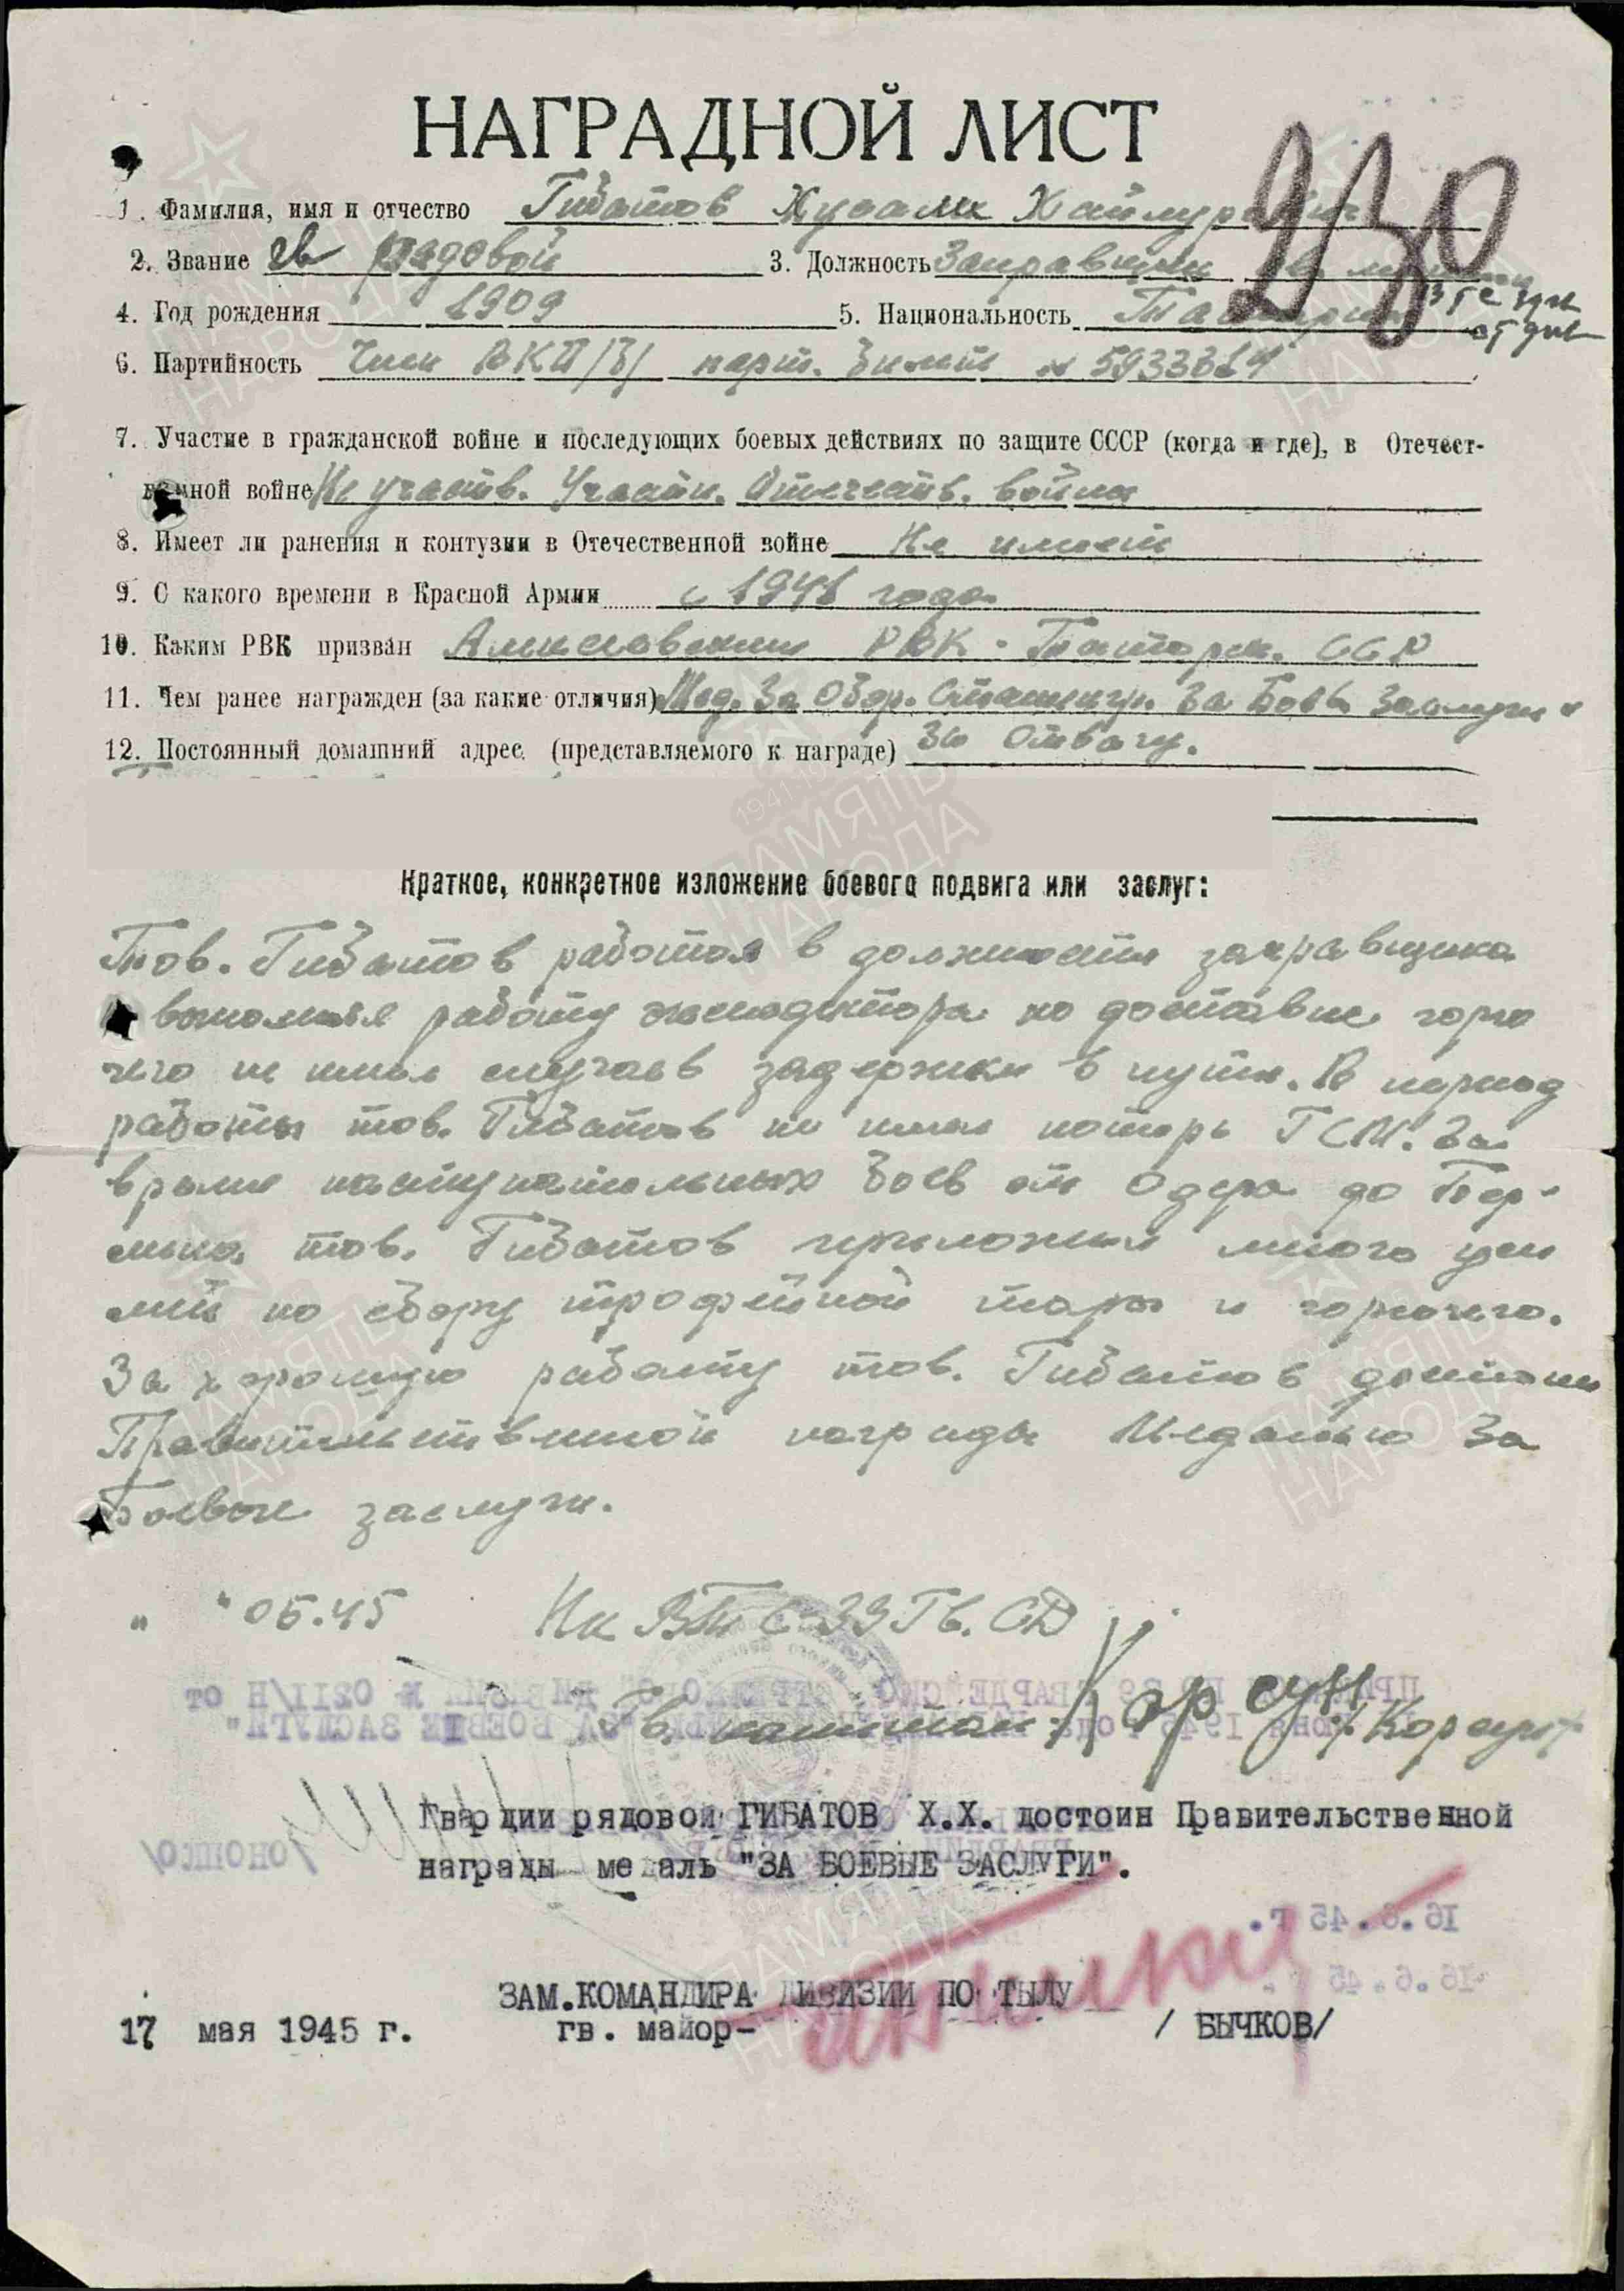 НАГРАДНОЙ ЛИСТ
230
1. Фамилия, имя и отчество Гибатов
2. Звание гв рядовой 3. Должность Заправщик
4. Год рождения 1909 5. Национальность Татарин
6. Партийность Член ВКП/б/ парт. билет №
7. Участие в гражданской войне и последующих боевых действиях по защите СССР (когда и где), в Отечест-
венной войне Не участв. Участн. Отечеств. война
8. Имеет ли ранения и контузии в Отечественной войне Не имеет
9. С какого времени в Красной Армии с 1941 года
10. Каким РВК призван РВК - Татарск. ССР
11. Чем ранее награжден (за какие отличия) Мед. За Обор. Сталингр. За Боев. Заслуги и
12. Постоянный домашний адрес (представляемого к награде) За Отвагу.
Краткое, конкретное изложение боевого подвига или заслуг:
Тов. Гибатов работая в должности заправщика
выполняя работу экспедитора по доставке горю
чего не имел случаев задержки в пути. В период
работы тов. Гибатов не имел потерь ГСМ. За
время наступательных боев от Одера до Бер-
лина тов. Гибатов приложил много уси
лий по сбору трофейной тары и горючего.
За хорошую работу тов. Гибатов достоин
Правительственной награды Медалью За
Боевые заслуги.
" " 05.45 39 Гв. СД
Гв. капитан Корсун /Корсун/
Гвардии рядовой ГИБАТОВ Х.Х. достоин Правительственной
награды медаль "ЗА БОЕВЫЕ ЗАСЛУГИ".
16.6.45 г.
16.6.45
ЗАМ.КОМАНДИРА ДИВИЗИИ ПО ТЫЛУ
17 мая 1945 г. гв. майор- /БЫЧКОВ/